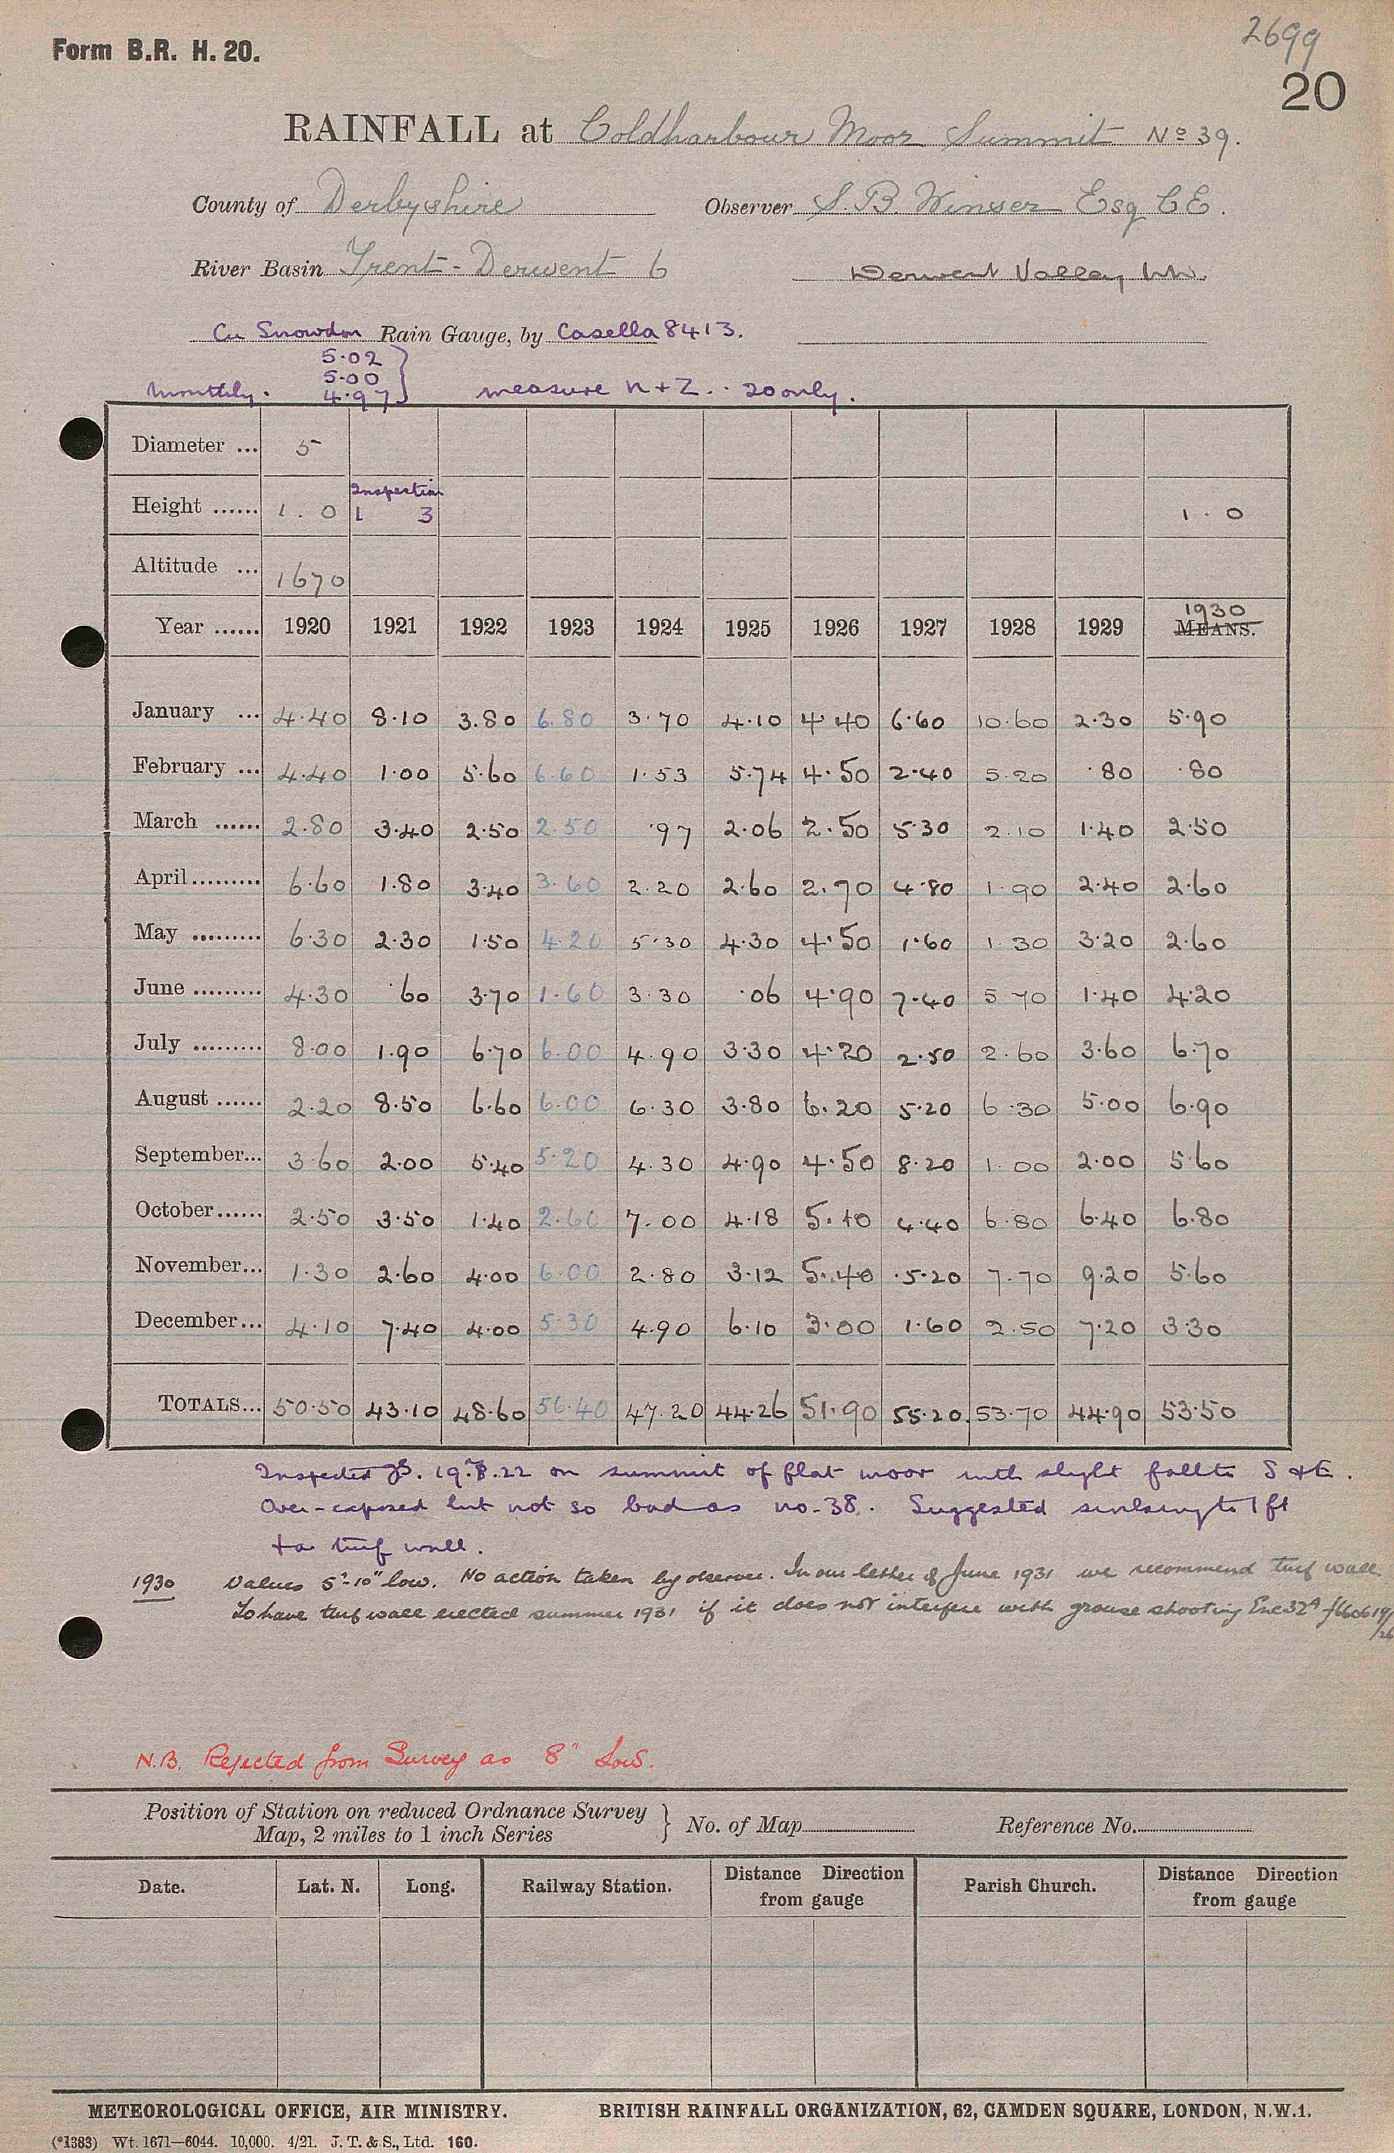 2699
Form B.R. H. 20.
20
RAINFALL at Coldharbour Moor Summit No 39.
County of Derbyshire Observer S. B. Winser Esq C E.
River Basin Trent - Derwent 6 Derwent Valley WW.
Cu Snowdon Rain Gauge, by Casella 8413.
5.02
5.00
monthly. 4.97 } measure N + Z . . 20 only.
Diameter ... 5
Height ...... 1 . 0 Inspection 1 3 1 . 0
Altitude ... 1670
Year ...... 1920 1921 1922 1923 1924 1925 1926 1927 1928 1929 1930 MEANS.
January ... 4.40 8.10 3.80 6.80 3.70 4.10 4.40 6.60 10.60 2.30 5.90
February ... 4.40 1.00 5.60 6.60 1.53 5.74 4.50 2.40 5.20 .80 .80
March ...... 2.80 3.40 2.50 2.50 .97 2.06 2.50 5.30 2.10 1.40 2.50
April......... 6.60 1.80 3.40 3.60 2.20 2.60 2.70 4.80 1.90 2.40 2.60
May ......... 6.30 2.30 1.50 4.20 5.30 4.30 4.50 1.60 1.30 3.20 2.60
June ......... 4.30 .60 3.70 1.60 3.30 .06 4.90 7.40 5 70 1.40 4.20
July ......... 8.00 1.90 6.70 6.00 4.90 3.30 4.20 2.50 2.60 3.60 6.70
August ...... 2.20 8.50 6.60 6.00 6.30 3.80 6.20 5.20 6.30 5.00 6.90
September... 3.60 2.00 5.40 5.20 4.30 4.90 4.50 8.20 1.00 2.00 5.60
October...... 2.50 3.50 1.40 2.60 7.00 4.18 5.10 4.40 6.80 6.40 6.80
November... 1.30 2.60 4.00 6.00 2.80 3.12 5.40 5.20 7.70 9.20 5.60
December... 4.10 7.40 4.00 5.30 4.90 6.10 3.00 1.60 2.50 7.20 3.30
TOTALS... 50.50 43.10 48.60 56.40 47.20 44.26 51.90 55.20 53.70 44.90 53.50
Inspected 19.7.22 on summit of flat moor with slight fall to S & E.
Over-exposed but not so bad as no. 38. Suggested sinking to 1 ft
+ a turf wall.
1930 Values 5"-10" low. No action taken by observer. In our letter of June 1931 we recommend turf wall.
To have turf wall erected summer 1931 if it does not interfere with grouse shooting
N.B. Rejected from Survey as 8" Low.
Position of Station on reduced Ordnance Survey } No. of Map Reference No.
Map, 2 miles to 1 inch Series
Date. Lat. N. Long. Railway Station. Distance Direction from gauge Parish Church. Distance Direction from gauge
METEOROLOGICAL OFFICE, AIR MINISTRY. BRITISH RAINFALL ORGANIZATION, 62, CAMDEN SQUARE, LONDON, N.W.1.
(*1383) Wt. 1671—6044. 10,000. 4/21. J. T. & S., Ltd. 160.